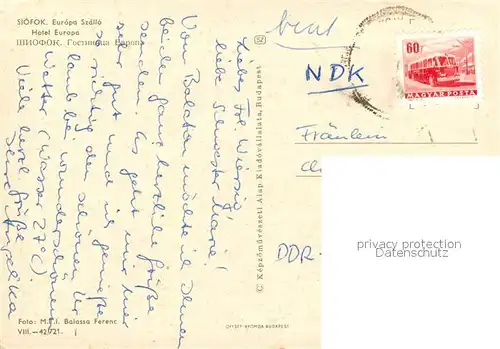 SIÓFOK. Európa Szálló
Hotel Europa
ШИОФОК. Гостиница Европа
Liebes Frl. Wiersig,
liebe Schwester Diane!
Vom Balaton möchte ich Ihnen
beiden ganz herzliche Grüße
senden. Es geht mir hier
sehr gut und ich genieße
so richtig den schönen Ur-
laub bei wunderschönem
Wetter (Wasser 27°C)
Viele herzl. Grüße
Ihre Angelika
Foto: M.T.I. Balassa Ferenc
VIII.—42/721.
© Képzőművészeti Alap Kiadóvállalata, Budapest
OFFSET-NYOMDA BUDAPEST
NDK
60f
MAGYAR POSTA
Fräulein
DDR-
privacy protection